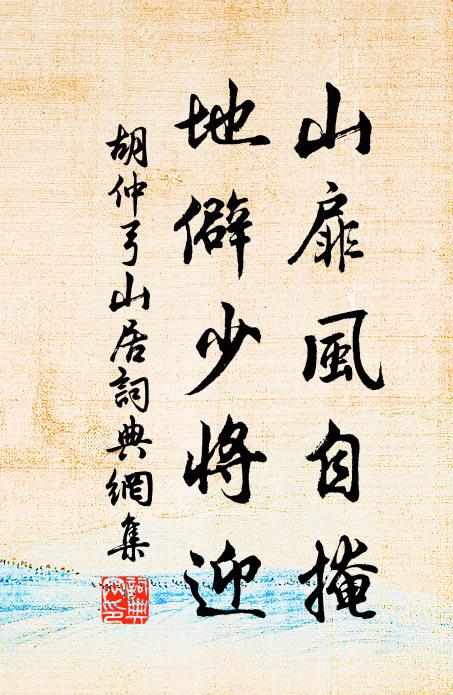 山扉風自掩
地僻少將迎
胡仲弓山居詞典網集